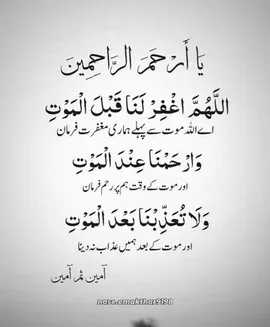 يَا أَرْحَمَ الرَّاحِمِينَ
اللَّهُمَّ اغْفِرْ لَنَا قَبْلَ الْمَوْتِ
اے اللہ موت سے پہلے ہماری مغفرت فرمان
وَارْحَمْنَا عِنْدَ الْمَوْتِ
اور موت کے وقت ہم پر رحم فرمان
وَلَا تُعَذِّبْنَا بَعْدَ الْمَوْتِ
اور موت کے بعد ہمیں عذاب نہ دینا
آمین ثم آمین